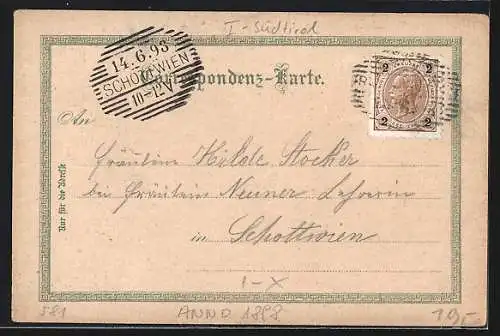 I - Südtirol
14.6.93
SCHOTTWIEN
10-12V
Correspondenz-Karte.
2 2
2 2
An
Fräulein Hilde Stocker
bei Fräulein Neuner Lehrerin
in Schottwien
Nur für die Adresse
I-X
581
ANNO 1898
19,-